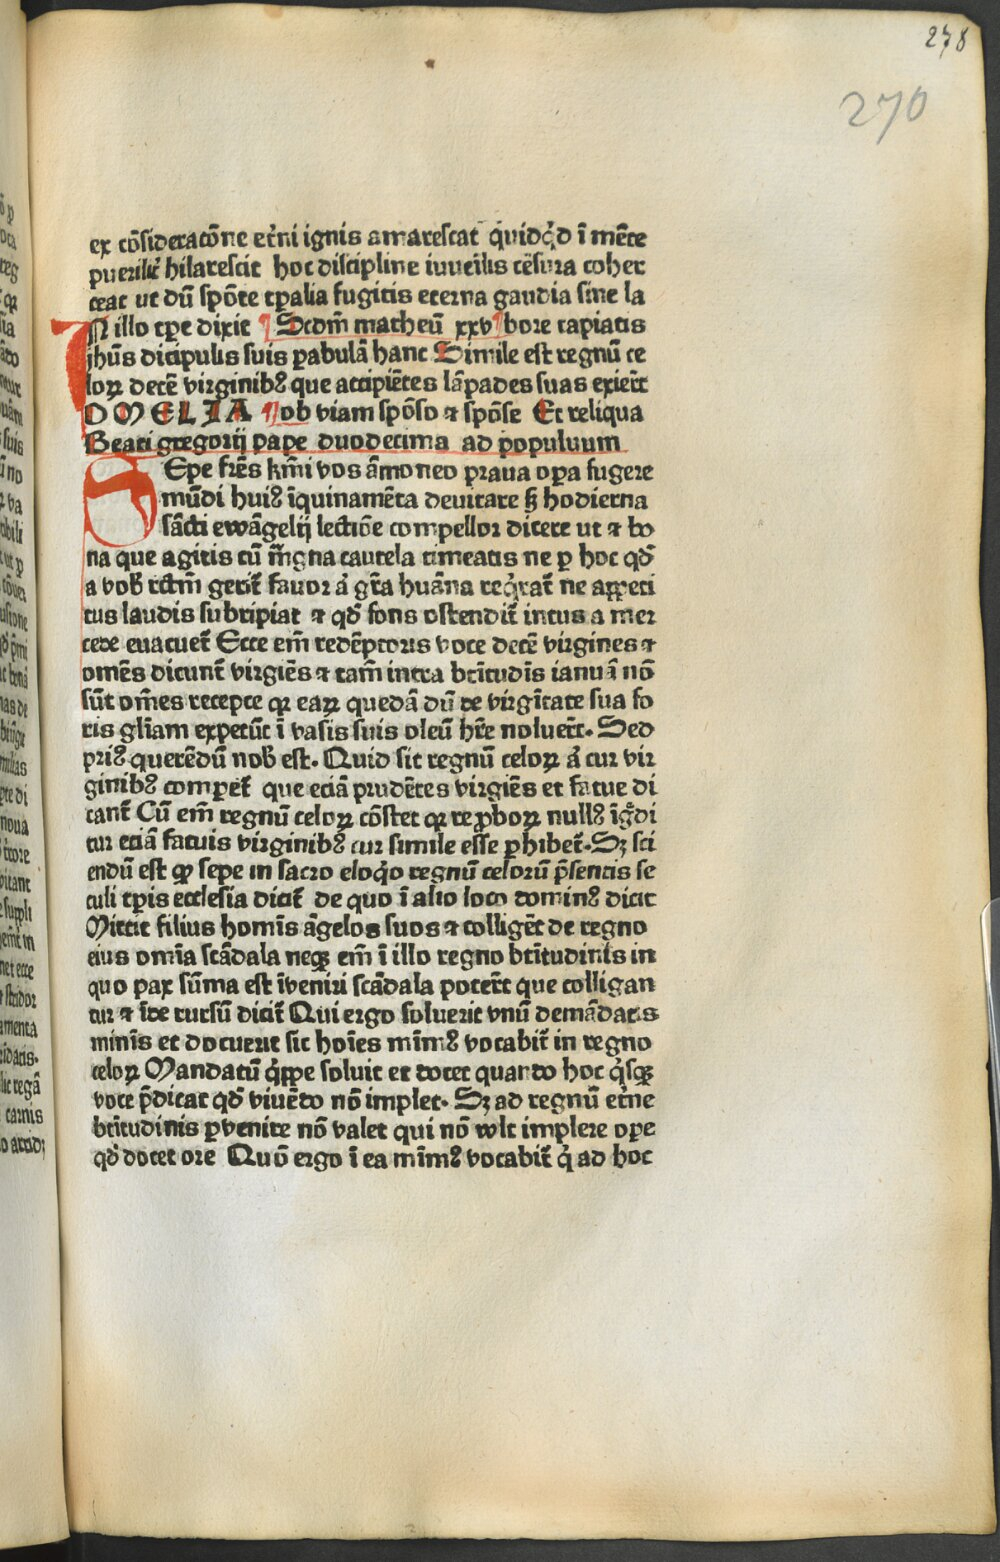 278
270
ex cōsideracōne et̄ni ignis amarescat quidqd̄ ī mēte
puerilit̄ hilarescit hoc discipline iuueīlis cēsura coher
ceat ut dū spōte tp̄alia fugitis eterna gaudia sine la
IN illo tpe dixit ¶ Scdm̄ matheū xxv ¶ bore capiatis
jhūs dicipulis suis parabulā hanc Simile est regnū ce
loꝝ decē virginibꝰ que accipiētes lāpades suas exier̄t
OMELIA ¶ ob viam spōso ⁊ spōse Et reliqua
Beati gregorij pape duodecima ad populuum
SEpe frēs km̄i vos āmoneo praua opa fugere
mūdi huiꝰ īquinamēta deuitare sꝫ hodierna
sācti ewāgelij lectiōe compellor dicere ut ⁊ bo
na que agitis cū m̄gna cautela timeatis ne ꝑ hoc qd̄
a vob̄ rctm̄ gerit̄ fauor aͥ gr̄a huāna reqͥrat̄ ne appeti
tus laudis subripiat ⁊ qd̄ fons ostendit̄ intus a mer
cede euacuet̄ Ecce em̄ redēptoris voce decē virgines ⁊
omēs dicunt̄ virgiēs ⁊ tam̄ intra btītudīs ianuā nō
sūt om̄es recepte qꝛ eaꝝ quedā dū de virgītate sua fo
ris gl̄iam expetūt ī vasis suis oleū hr̄e noluer̄t. Sed
priꝰ querēdū nob̄ est. Quid sit regnū celoꝝ aͥ cur vir
ginibꝰ comparet̄ que eciā prudētes virgiēs et fatue di
cant̄ Cū em̄ regnū celoꝝ cōstet qꝛ reproboꝝ nullꝰ īgdi
tur eciā fatuis virginibꝰ cur simile esse ꝑhibet̄. Sꝫ sci
endū est qꝙ sepe in sacro eloqͦo regnū celorū p̄sentis se
culi tp̄is ecclesia dicit̄ de quo ī alio loco dominꝰ dicit
Mittit filius homīs āgelos suos ⁊ colligēt de regno
eius omīa scādala neqꝫ em̄ ī illo regno btītudinīs in
quo pax sūma est īveniri scādala poter̄t que colligan
tur ⁊ īde rursū dicit̄ Qui ergo soluerit vnū demādatis
minīs et docuerit sic hoīes mīmꝰ vocabit̄ in regno
celoꝝ Mandatū qͥppe soluit et docet quando hoc qͥsqꝫ
voce p̄dicat qd̄ viuēdo nō implet. Sꝫ ad regnū et̄ne
btītudinis ꝑvenire nō valet qui nō wlt implere ope
qd̄ docet ore Quō ergo ī ea mīmꝰ vocabit̄ qͥ ad hoc